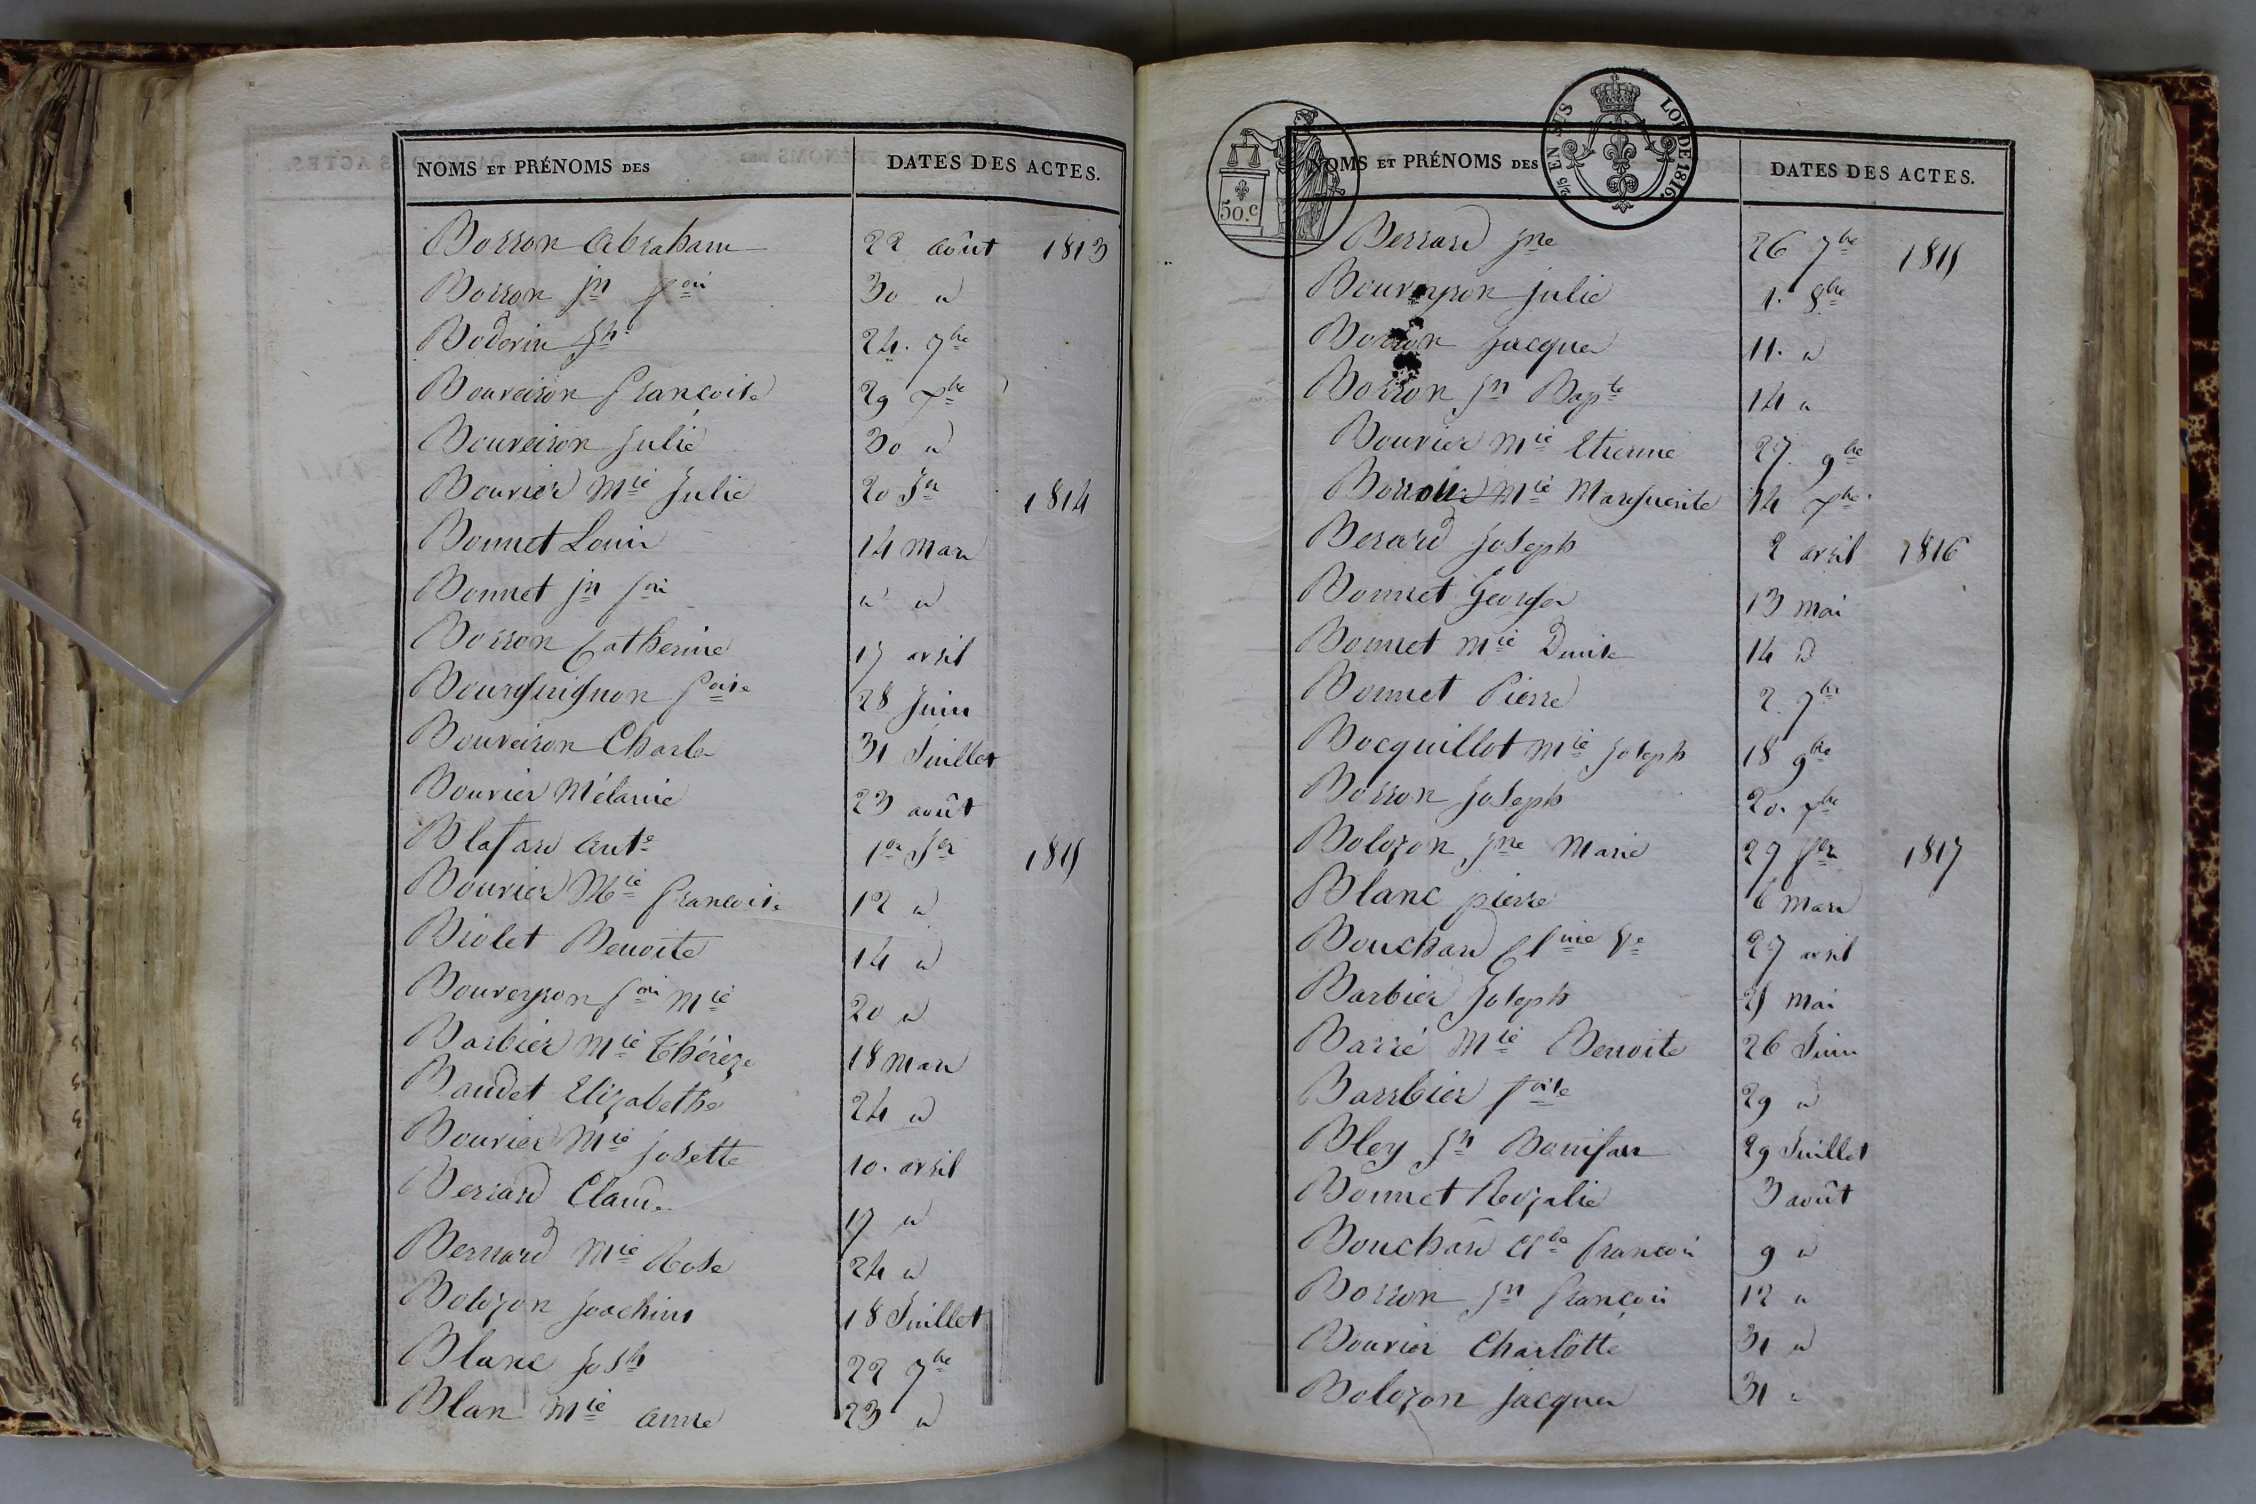 NOMS ET PRÉNOMS DES DATES DES ACTES.
Borron Abraham 22 août 1813
Borron Jn fçoi 30 "
Boderin Jh 24. 7bre
Bouveiron françoise 29 7bre
Bouveiron Julie 30 "
Bouvier Mie Julie 20 Jer 1814
Bonnet Louis 14 Mars
Bonnet Jn foi " "
Borron Catherine 17 avril
Bourguignon foise 28 Juin
Bouveiron Charles 31 Juillet
Bouvier Mélanie 23 août
Blafard Ante 1er Jer 1815
Bouvier Mie françoise 12 "
Briolet Benoite 14 "
Bouveyron foi Mie 20 "
Barbier Mie Thérèze 18 Mars
Baudet Elizabethe 24 "
Bouvier Mie Josette 10. avril
Berrard Claude 17 "
Bernard Mie Rose 24 "
Bolozon Joachim 18 Juillet
Blanc Josh 22 7bre
Blan Mie Anne 23 "
50.c
2/5 EN SUS LOI DE 1816.
NOMS ET PRÉNOMS DES DATES DES ACTES.
Berrard Jne 26 7bre 1815
Bouveyron Julie 1. 8bre
Borron Jacques 11. "
Borron Jn Bapte 14 "
Bouvier Mie Etienne 27. 9bre
Mie Marguerite 14 7bre
Berard Joseph 2 avril 1816
Bonnet Georges 13 Mai
Bonnet Mie Denise 14 d
Bonnet Pierre 2. 7bre
Bocquillot Mie Joseph 18 9bre
Borron Joseph 20. 7bre
Bolozon Jne Marie 27 fer 1817
Blanc pierre 6 Mars
Bouchard Clnie Ve 27 avril
Barbier Joseph 25 Mai
Barré Mie Benoite 26 Juin
Barrbier foise 29 "
Bley Jh Bonifas 29 Juillet
Bonnet Rozalie 3 août
Bouchard Clde françois 9 "
Borron Jn françois 12 "
Bouvier Charlotte 31 "
Bolozon Jacques 31 "